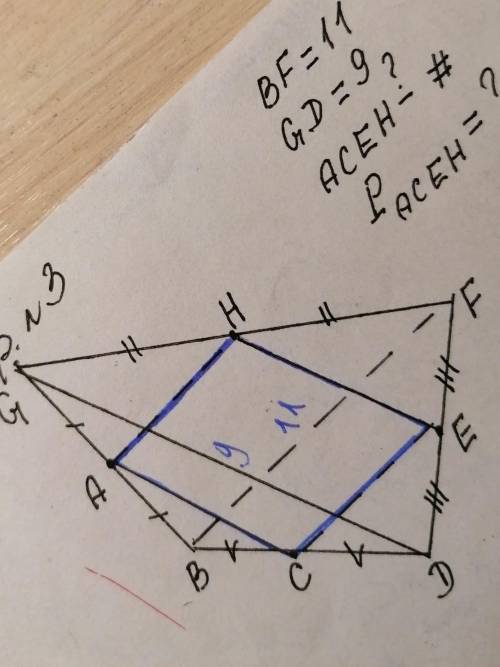 BF = 11
GD = 9
ACEH - # ?
P ACEH = ?
P. N3
H
F
G
11
9
E
A
B
C
D